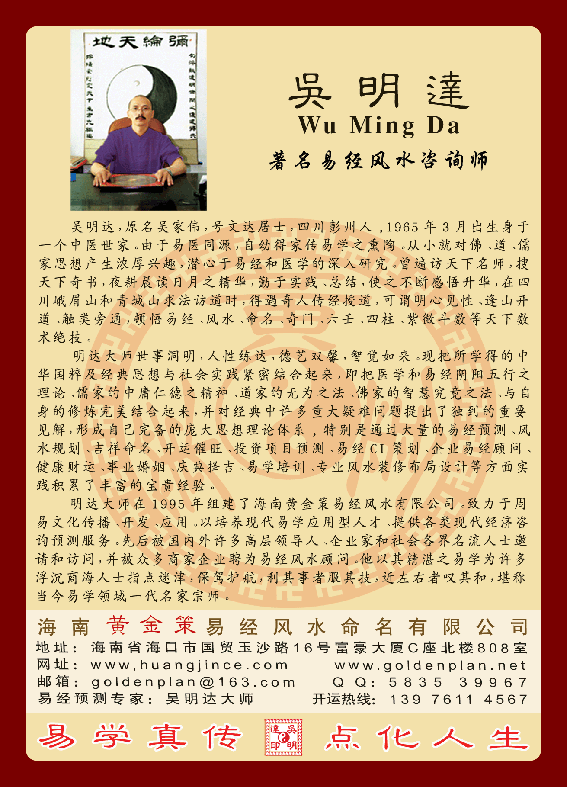 彌綸天地
吳明達
Wu Ming Da
著名易经风水咨询师
吴明达，原名吴家伟，号文达居士，四川彭州人，1965年3月出生身于
一个中医世家。由于易医同源，自幼得家传易学之熏陶。从小就对佛、道、儒
家思想产生浓厚兴趣，潜心于易经和医学的深入研究。曾遍访天下名师，搜
天下奇书，夜耕晨读日月之精华，勤于实践、总结，使之不断感悟升华，在四
川峨眉山和青城山求法访道时，得遇奇人传经授道，可谓明心见性、逢山开
道、触类旁通，顿悟易经、风水、命名、奇门、六壬、四柱、紫微斗数等天下数
术绝技。
明达大师世事洞明，人性练达，德艺双馨，智觉如来。现把所学得的中
华国粹及经典思想与社会实践紧密结合起来，即把医学和易经阴阳五行之
理论、儒家的中庸仁德之精神、道家的无为之法、佛家的智慧究竟之法、与自
身的修炼完美结合起来，并对经典中许多重大疑难问题提出了独到的重要
见解，形成自己完备的庞大思想理论体系，特别是通过大量的易经预测、风
水规划、吉祥命名、开运催旺、投资项目预测、易经CI策划、企业易经顾问、
健康财运、事业婚姻、庆典择吉、易学培训、专业风水装修布局设计等方面实
践积累了丰富的宝贵经验。
明达大师在1995年组建了海南黄金策易经风水有限公司，致力于周
易文化传播、开发、应用。以培养现代易学应用型人才、提供各类现代经济咨
询预测服务。先后被国内外许多高层领导人、企业家和社会各界名流人士邀
请和访问，并被众多商家企业聘为易经风水顾问。他以其精湛之易学为许多
浮沉商海人士指点迷津，保驾护航，利其事者服其技，近左右者叹其和，堪称
当今易学领域一代名家宗师。
海南黄金策易经风水命名有限公司
地址：海南省海口市国贸玉沙路16号富豪大厦C座北楼808室
网址：www.huangjince.com www.goldenplan.net
邮箱：goldenplan@163.com QQ：5835 39967
易经预测专家：吴明达大师 开运热线：139 7611 4567
易学真传 吳明達印 点化人生